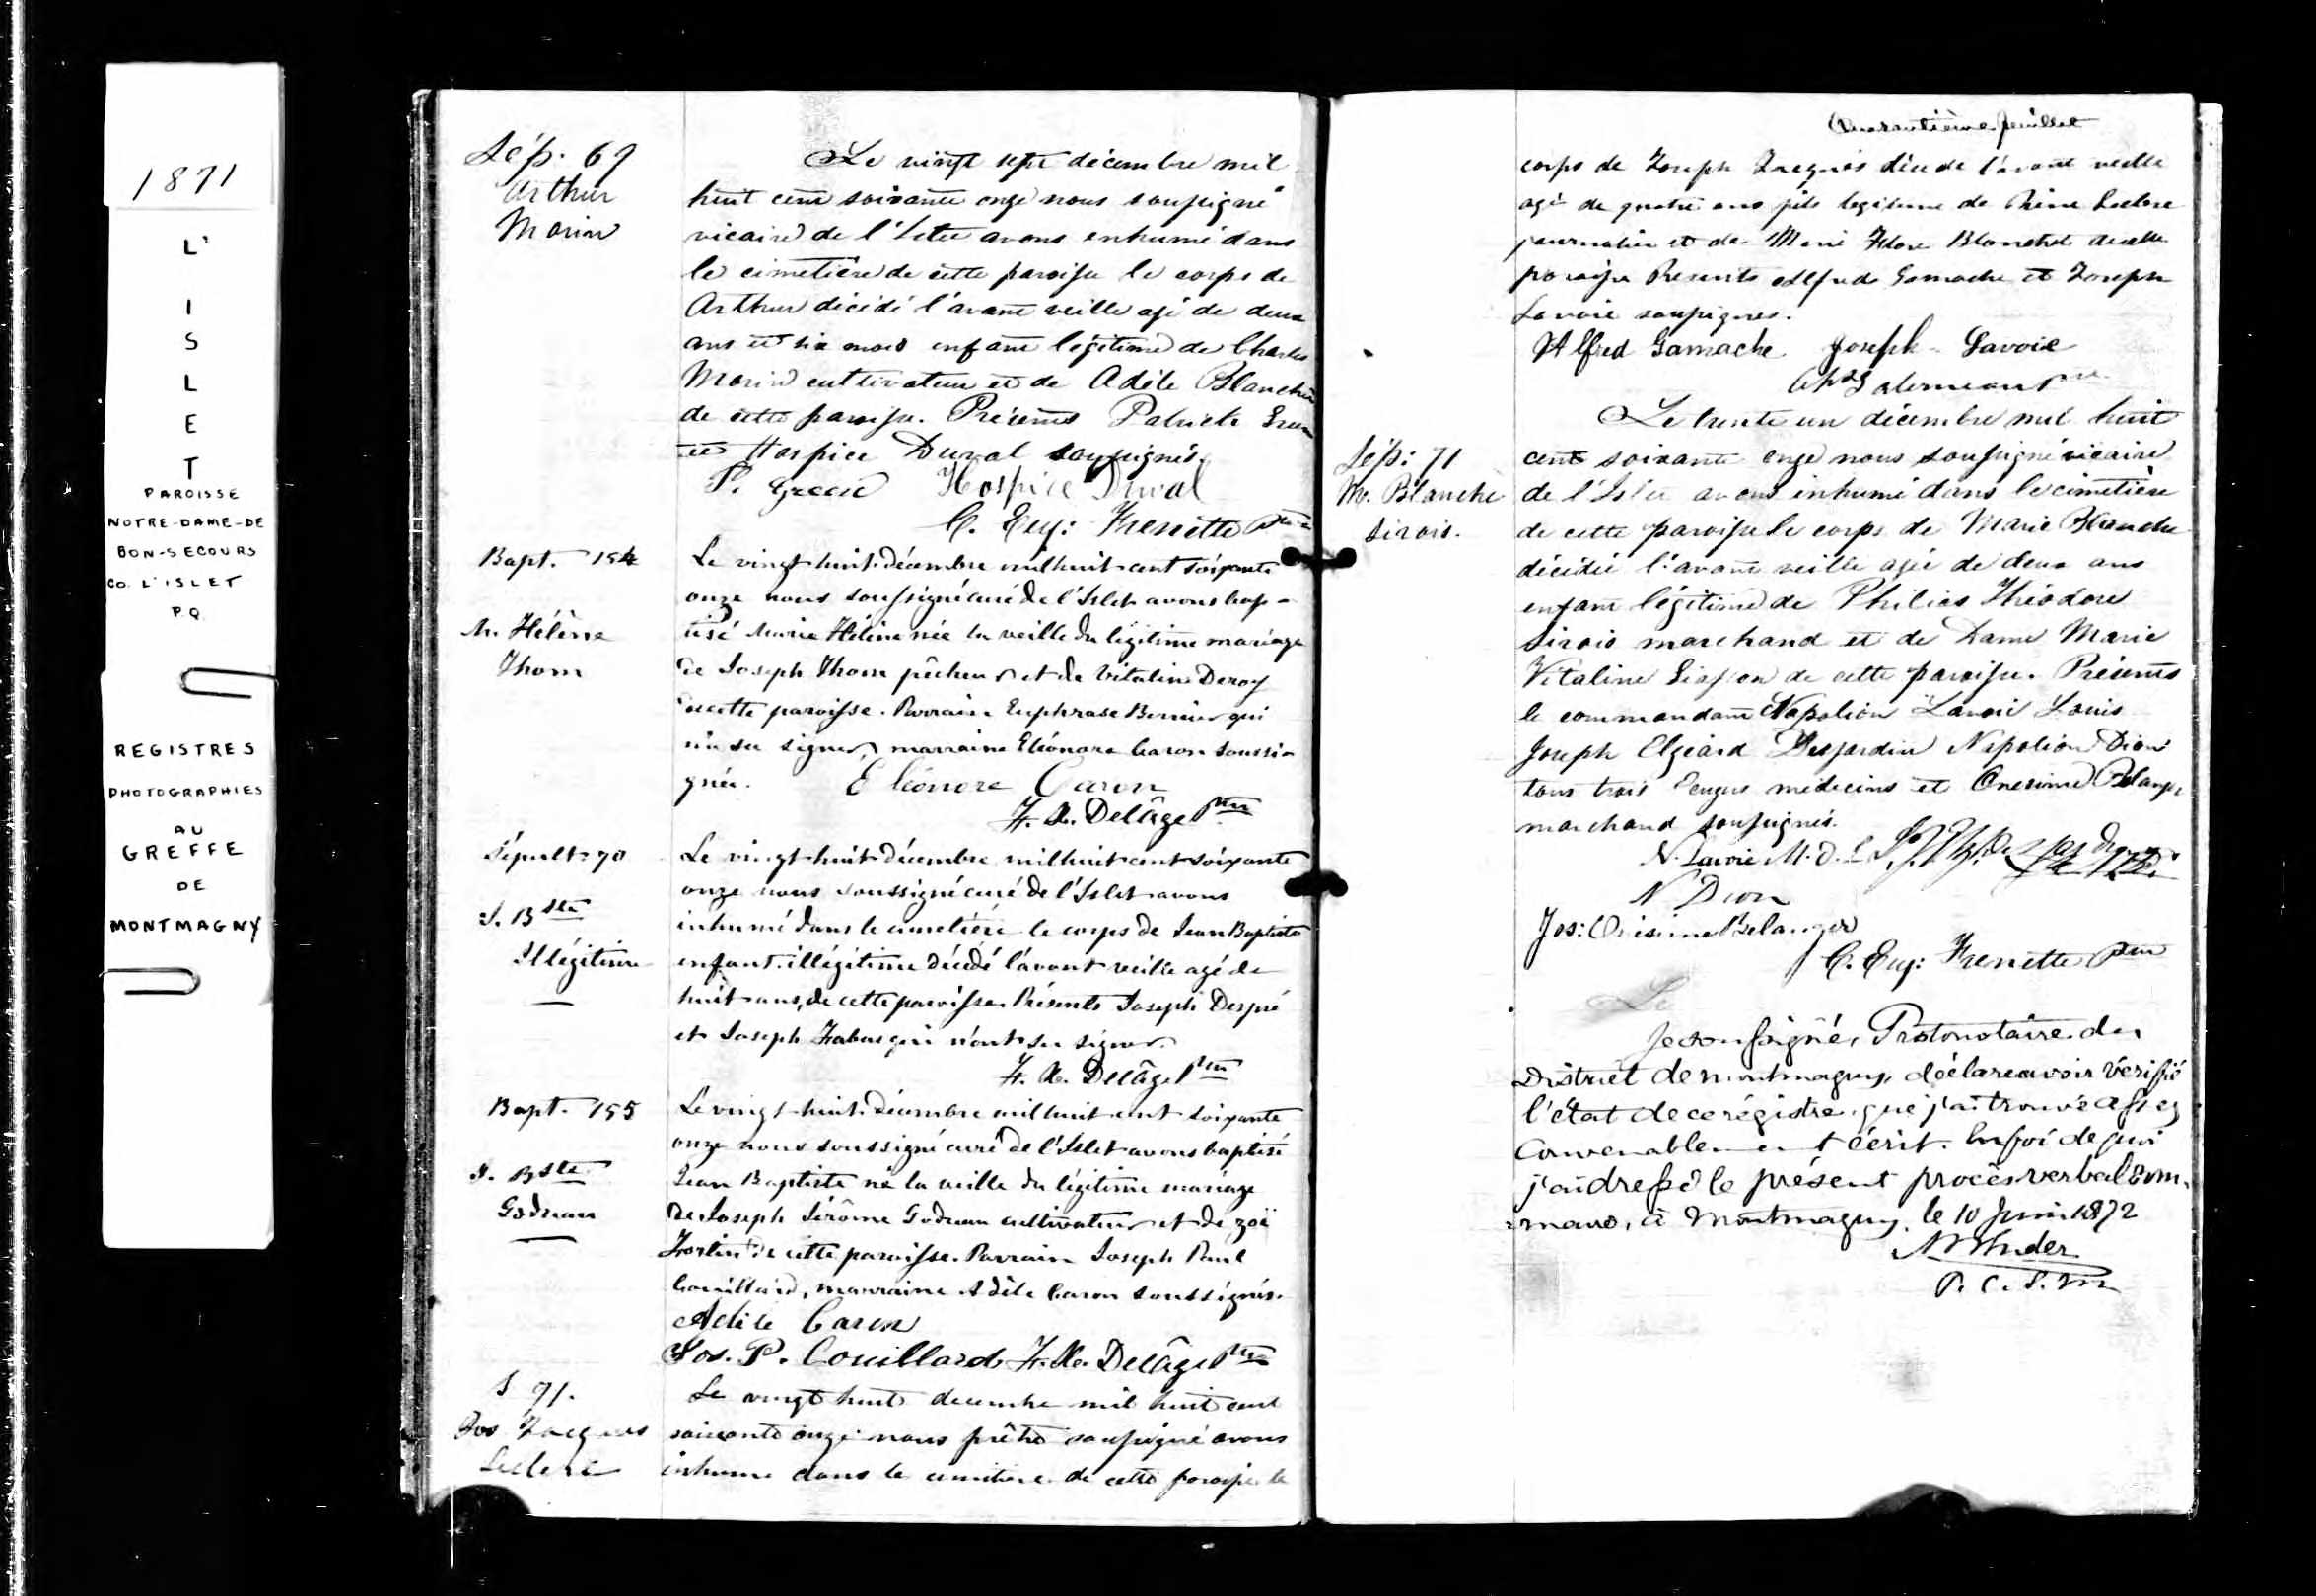 1871
L'
I
S
L
E
T
PAROISSE
NOTRE-DAME-DE
BON-SECOURS
CO. L'ISLET
P.Q.
REGISTRES
PHOTOGRAPHIES
AU
GREFFE
DE
MONTMAGNY
Sép. 69
Arthur
Morin
Le vingt sept décembre mil
huit cent soixante onze nous soussigné
vicaire de l'Islet avons enhumé dans
le cimetière de cette paroisse le corps de
Arthur décédé l'avant veille agé de deux
ans et six mois enfant légitime de Charles
Morin cultivateur et de Adèle Blanchet
de cette paroisse. Présents Patrick Green
et Hospice Duval soussignés.
P. Green Hospice Duval
C. Eug: Frenette Ptre
Bapt. 154
M. Hélène
Thom
Le vingt-huit décembre mil huit cent soixante
onze nous soussigné curé de l'Islet avons bap-
tisé Marie Hélène née la veille du légitime mariage
de Joseph Thom pêcheur et de Vitaline Deroy
de cette paroisse. Parrain Euphrase Bernier qui
n'a su signer, marraine Eléonore Caron soussi-
gnée. Eléonore Caron
F. X. Delâge Ptre
Sépult. 70
J. Bste
Illégitime
Le vingt-huit décembre mil huit cent soixante
onze nous soussigné curé de l'Islet avons
inhumé dans le cimetière le corps de Jean Baptiste
enfant illégitime décédé l'avant veille agé de
huit ans, de cette paroisse. Présents Joseph Despré
et Joseph qui n'ont su signer.
F. X. Delâge Ptre
Bapt. 155
J. Bste
Godreau
Le vingt-huit décembre mil huit cent soixante
onze nous soussigné curé de l'Islet avons baptisé
Jean Baptiste né la veille du légitime mariage
de Joseph Jérôme Godreau cultivateur et de Zoë
Fortin de cette paroisse. Parrain Joseph Paul
Couillard, marraine Adèle Caron soussignés.
Adèle Caron
Jos. P. Couillard F. X. Delâge Ptre
S 71.
Jos Jacques
Leclerc
Le vingt huit decembre mil huit cent
soixante onze nous prêtre soussigné avons
inhumé dans le cimitiere de cette paroisse le
Quarantième feuillet
corps de Joseph Jacques décédé l'avant veille
agé de quatre ans fils legitime de Leclerc
journalier et de Marie Flore Blanchet de cette
paroisse Presents Alfred Gamache et Joseph
Lavoie soussignes.
Alfred Gamache Joseph Lavoie
ptre
Sép: 71
M. Blanche
Sirois.
Le trente un décembre mil huit
cent soixante onze nous soussigné vicaire
de l'Islet avons inhumé dans le cimetière
de cette paroisse le corps de Marie Blanche
décédée l'avant veille agée de deux ans
enfant légitime de Philias Théodore
Sirois marchand et de Dame Marie
Vitaline de cette paroisse. Présents
le commandant Napoléon Lavoie Louis
Joseph Elzéard Desjardin Napoléon Dion
tous trois médecins et Onesime Belanger
marchand soussignés.
N. Lavoie M. D.
N Dion
Jos: Onésime Belanger
C. Eug: Frenette Ptre
Le
Je soussigné, Protonotaire du
District de Montmagny, déclare avoir vérifié
l'état de ce régistre, que j'ai trouvé assez
convenablement écrit. En foi de quoi
j'ai dressé le présent procès verbal som-
maire, à Montmagny, le 10 Juin 1872
P. C. S. M